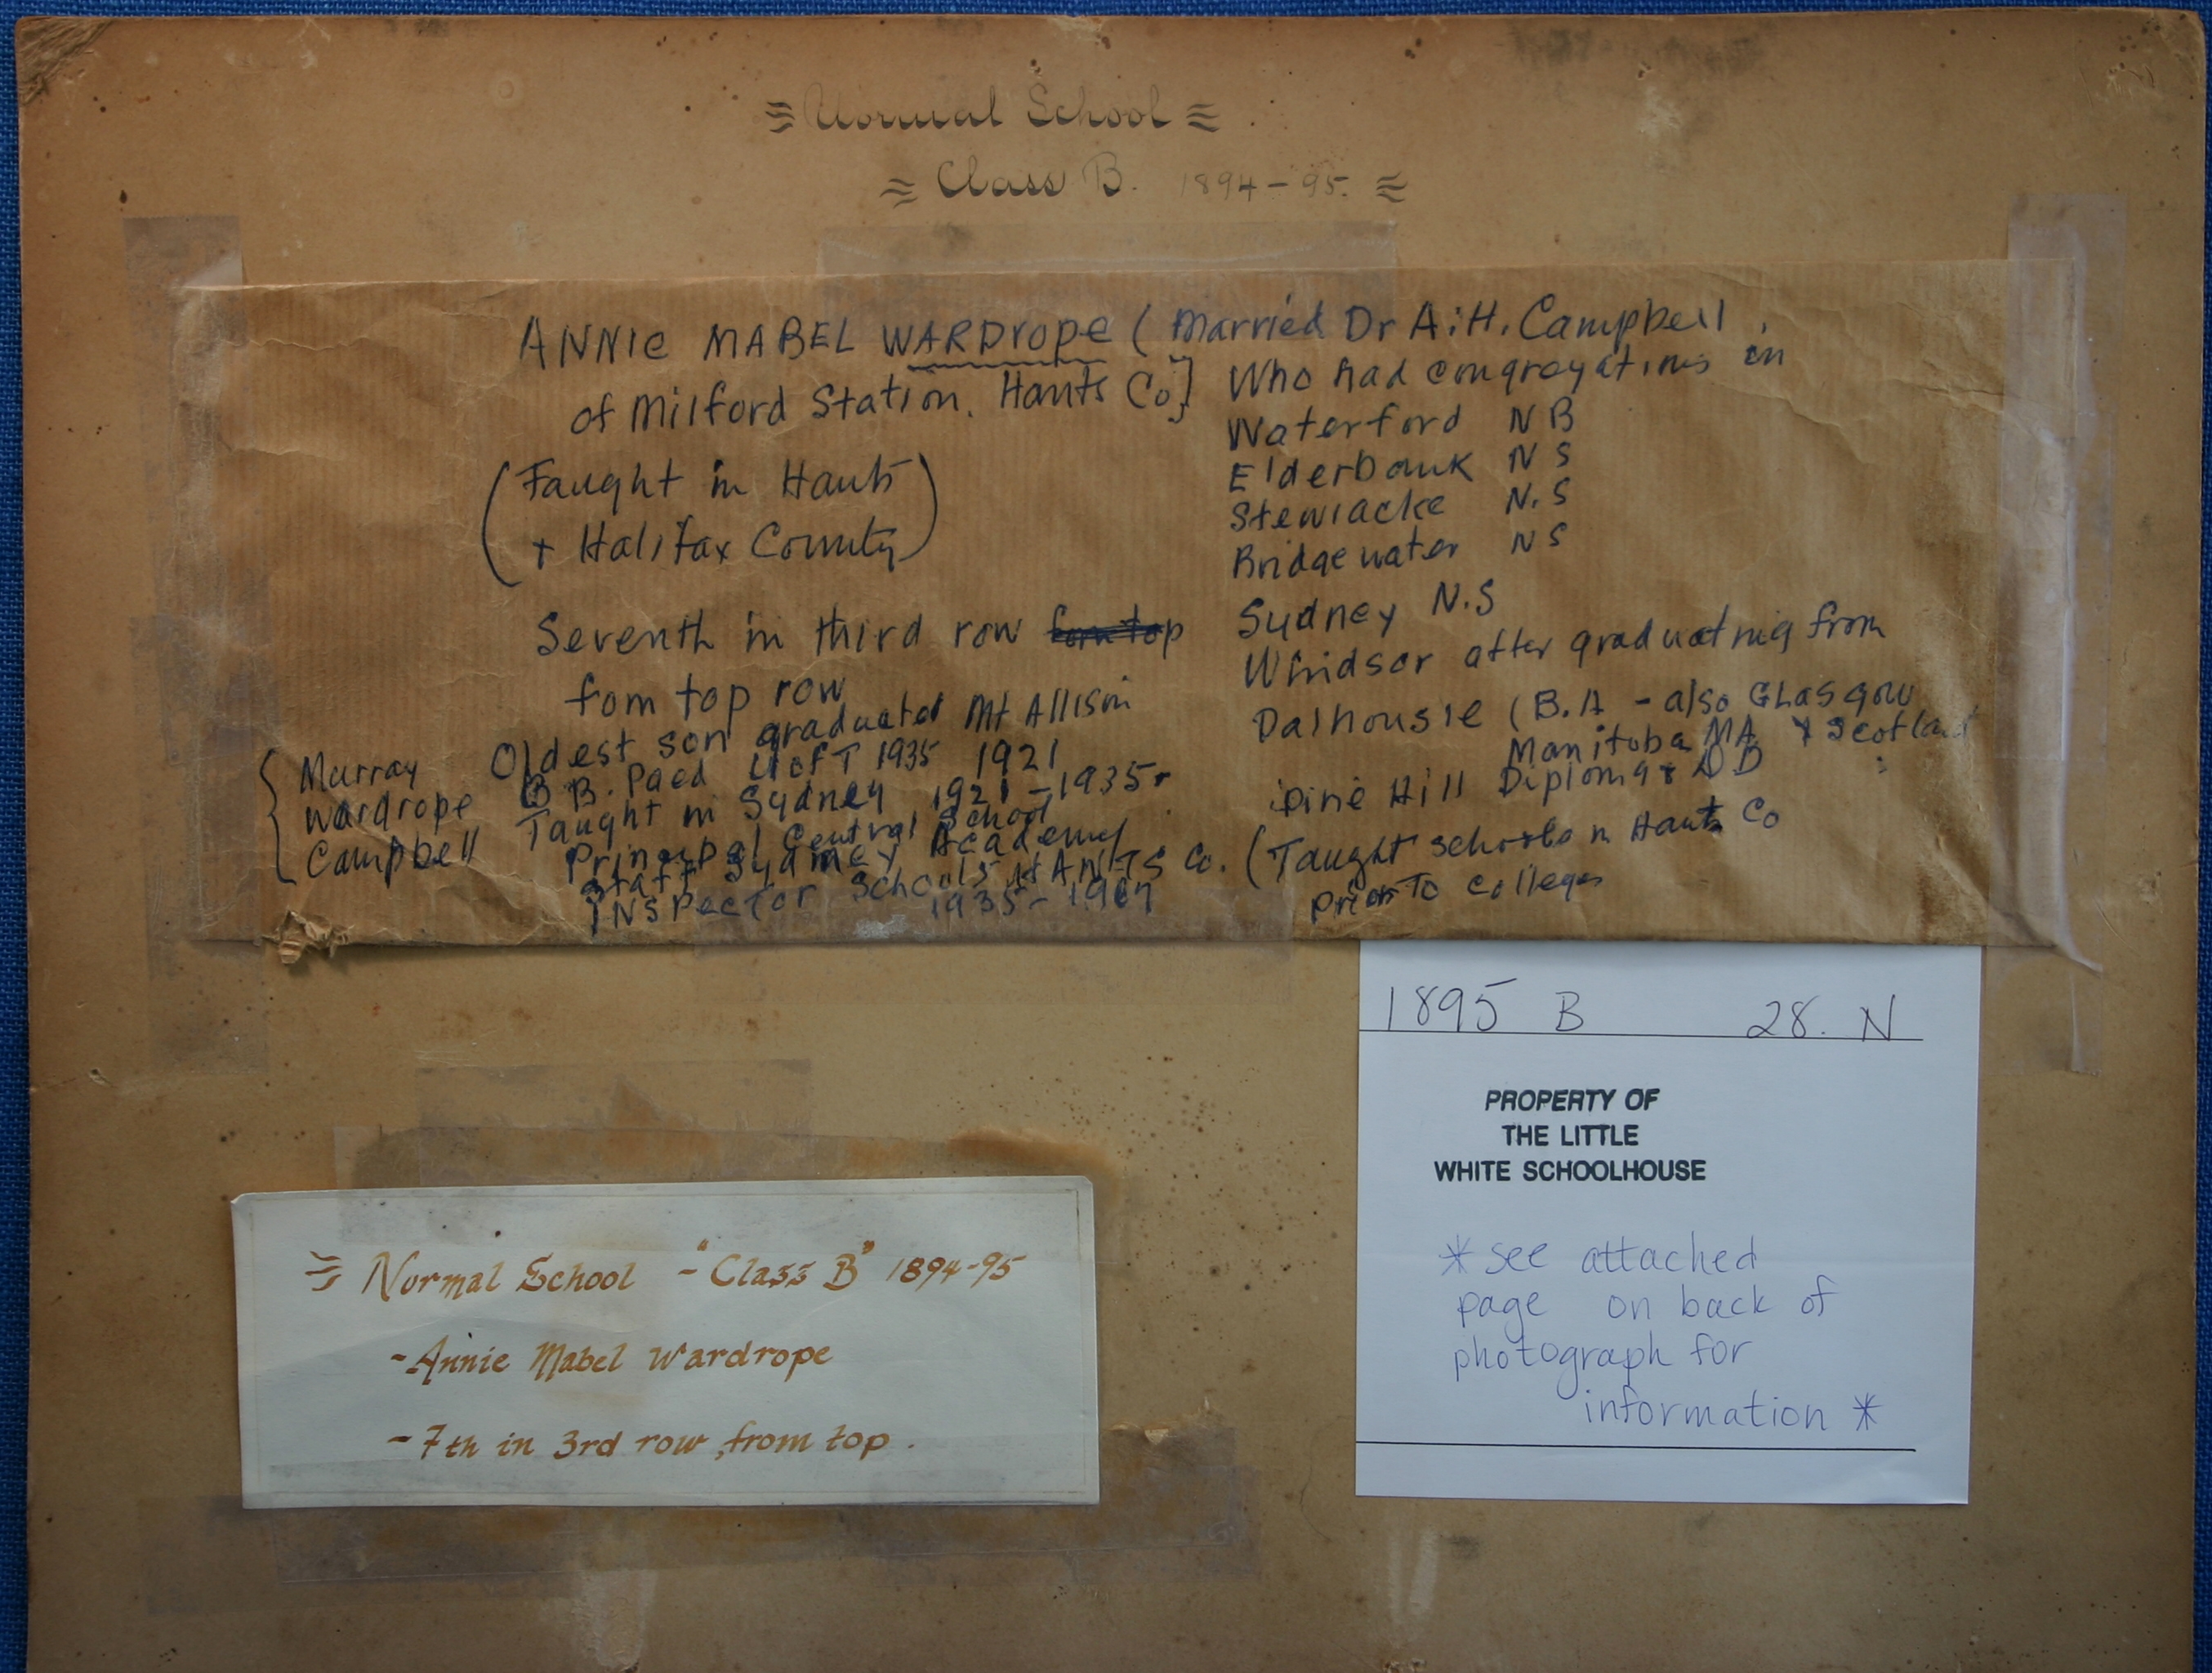 Normal School
Class B. 1894-95.
ANNIE MABEL WARDROPE (Married Dr A.H. Campbell
of Milford Station. Hants Co]
(Taught in Hants
+ Halifax County)
Seventh in third row
fom top row
Who had congregations in
Waterford NB
Elderbank NS
Stewiacke N.S
Bridgewater NS
Sydney N.S
Windsor after graduating from
Dalhousie (B.A - also Glasgow
Manitoba MA & Scotland
Pine Hill Diploma & DD
(Taught schools in Hants Co
Prior To Colleges
Murray
Wardrope
Campbell
Oldest son graduated Mt Allison
1921
B. Paed U of T 1935
Taught in Sydney 1921-1935
Principal Central School
Staff Sydney Academy
INSPECTOR Schools HANTS Co.
1935-1967
1895 B 28. N
PROPERTY OF
THE LITTLE
WHITE SCHOOLHOUSE
*see attached
page on back of
photograph for
information *
Normal School - "Class B" 1894-95
-Annie Mabel Wardrope
-7th in 3rd row, from top.